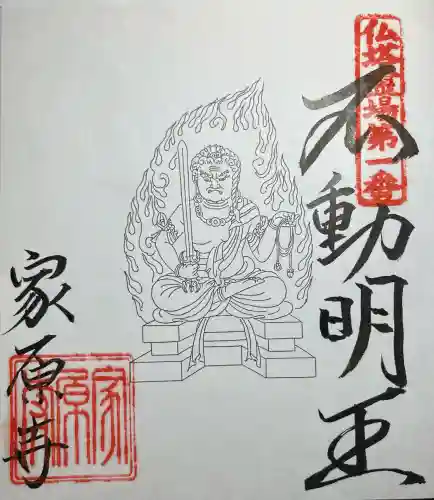 仏塔霊場第一番
不動明王
家原寺
家原寺